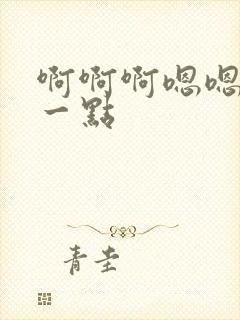 啊啊啊嗯嗯
一點
青圭